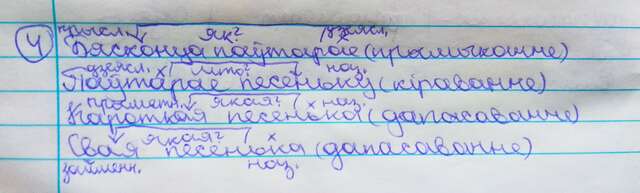 прысл. як? дзеясл.
4 Бясконца паўтарае (прымыканне)
дзеясл. што? наз.
Паўтарае песеньку (кіраванне)
прыметн. якая? наз.
Кароткая песенька (дапасаванне)
якая?
Свая песенька (дапасаванне)
займенн. наз.